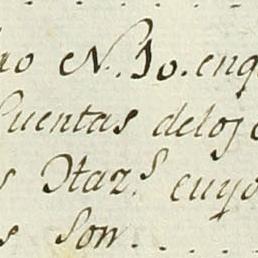 ro N. 30. enq
Cuentas delos c
s Ytaz.s cuyo
s son. . . .